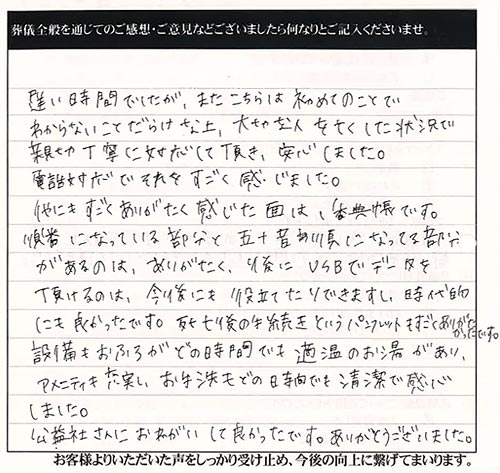 葬儀全般を通じてのご感想・ご意見などございましたら何なりとご記入くださいませ。
遅い時間でしたが、またこちらは初めてのことで
わからないことだらけな上、大切な人を亡くした状況で
親切丁寧に対応して頂き、安心しました。
電話対応でそれをすごく感じました。
他にもすごくありがたく感じた面は、香典帳です。
順番になっている部分と五十音順になってる部分
があるのは、ありがたく、後にUSBでデータを
頂けるのは、今後にも役立てたりできますし、時代的
にも良かったです。死亡後の手続きというパンフレットもすごくありがたかったです。
設備もおふろがどの時間でも適温のお湯があり、
アメニティも充実し、お手洗もどの時間でも清潔で感心
しました。
公益社さんにおねがいして良かったです。ありがとうございました。
お客様よりいただいた声をしっかり受け止め、今後の向上に繋げてまいります。